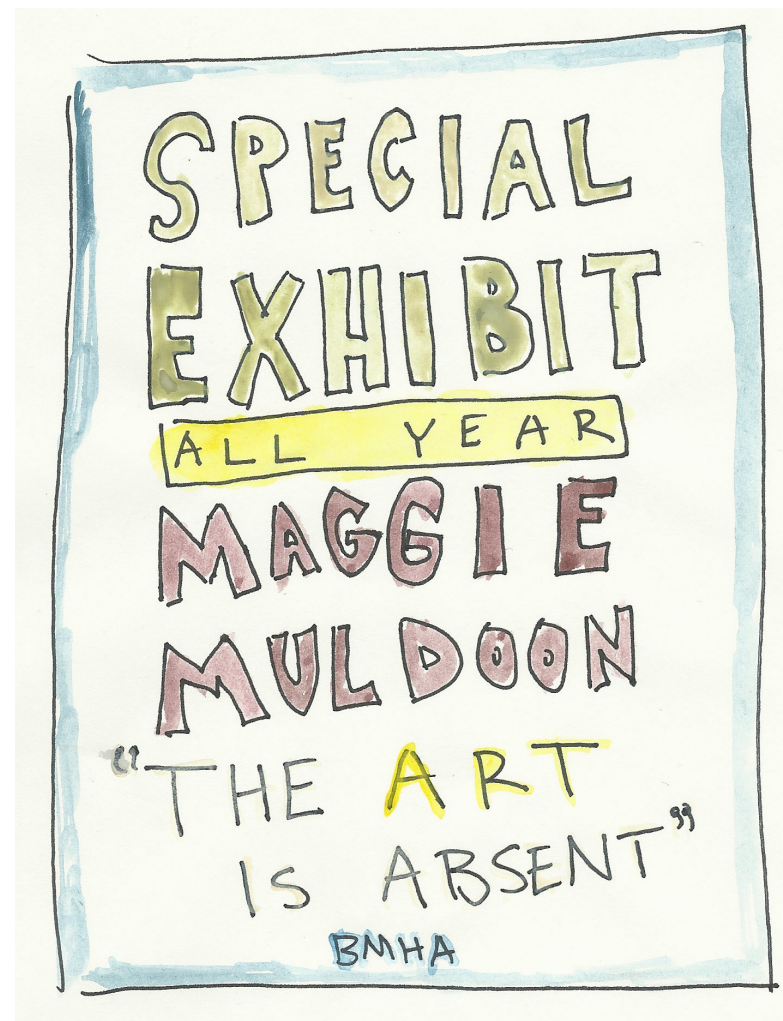 SPECIAL
EXHIBIT
ALL YEAR
MAGGIE
MULDOON
"THE ART
IS ABSENT"
BMHA